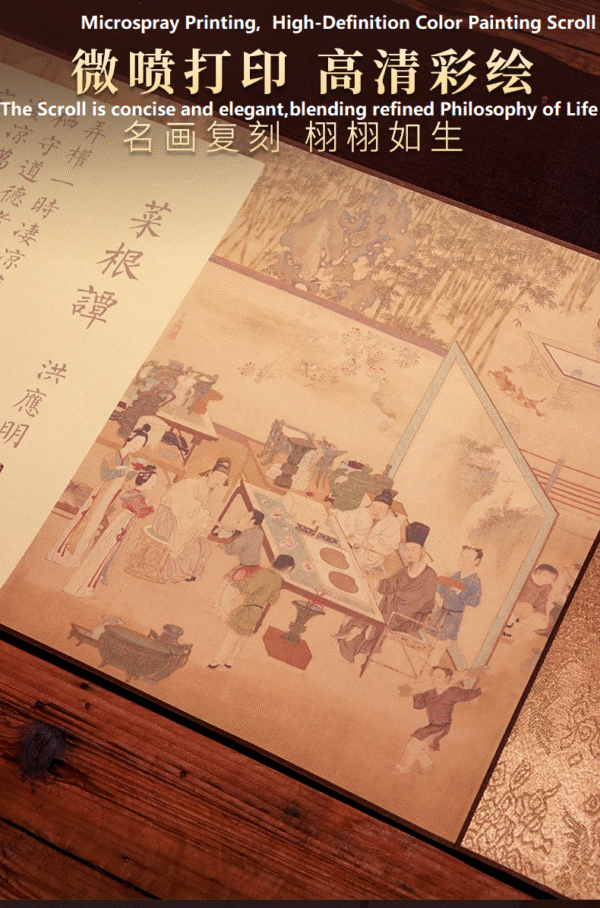 Microspray Printing,  High-Definition Color Painting Scroll
微喷打印 高清彩绘
The Scroll is concise and elegant,blending refined Philosophy of Life
名画复刻 栩栩如生
菜根譚
洪應明
弄權一時淒涼
守道德